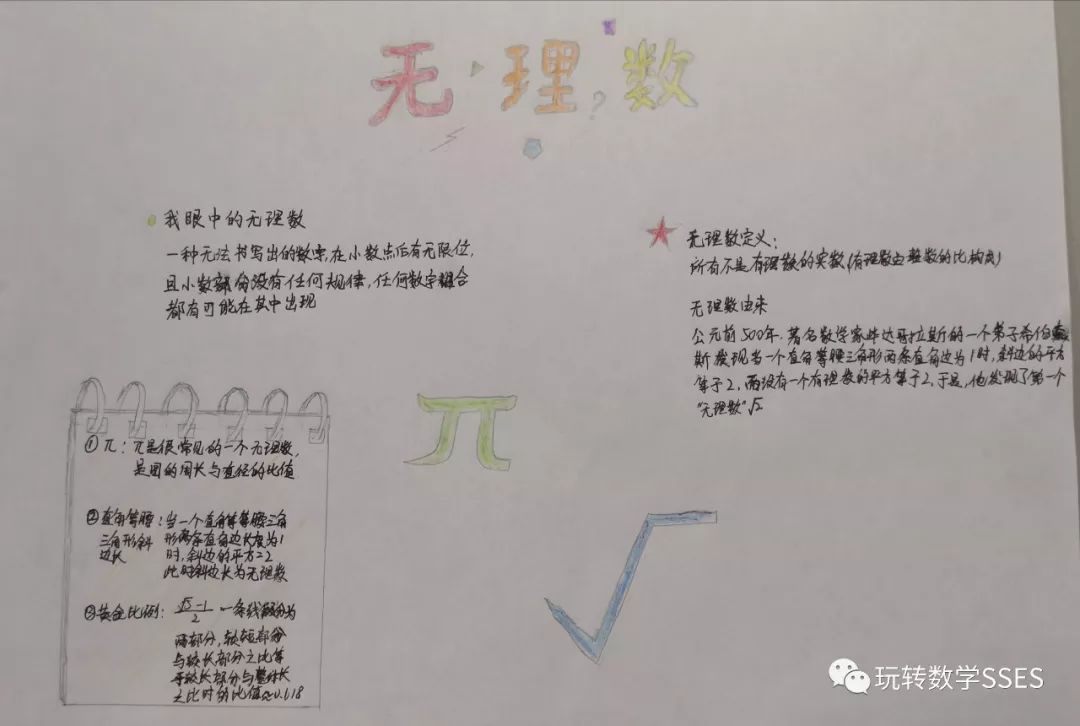 无理数
我眼中的无理数
一种无法书写出的数字,在小数点后有无限位,
且小数部分没有任何规律,任何数字组合
都有可能在其中出现
无理数定义:
所有不是有理数的实数(有理数由整数的比构成)
无理数由来
公元前500年,著名数学家毕达哥拉斯的一个弟子希伯索
斯发现当一个直角等腰三角形两条直角边为1时,斜边的平方
等于2,而没有一个有理数的平方等于2,于是,他发现了第一个
“无理数”√2
①π:π是很常见的一个无理数,
是圆的周长与直径的比值
π
②直角等腰三角形斜边长:当一个直角等腰三角
形两条直角边长度为1
时,斜边的平方=2
此时斜边长为无理数
√
③黄金比例:(√5-1)/2 一条线段分为
两部分,较短部分
与较长部分之比等
于较长部分与整体长
之比时的比值≈0.618
玩转数学SSES